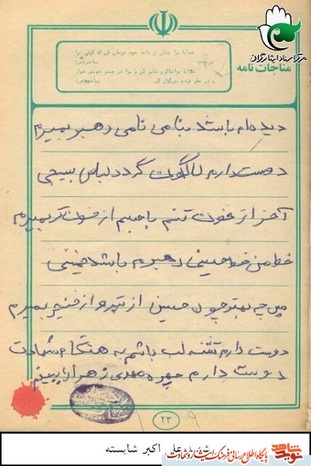 مرکز اسناد ایثارگران
مناجات نامه
خدایا مرا چنان از یاد خود
دیده ام باشد بنامی نامی رهبر بمیرم
دوست دارم لاله گون گردد لباس بسیجی
آخر از خون تنم با جسم از خون تر بمیرم
خط من خط حسینی رهبرم باشد خمینی
من چه بهتر چون حسین از تیر و از خنجر بمیرم
دوست دارم تشنه لب باشم به هنگام شهادت
دوست دارم چهره مهدی زهرا را ببینم
۲۳
شهید علی اکبر شایسته
نوید شاهد
پایگاه اطلاع رسانی فرهنگ ایثار و شهادت